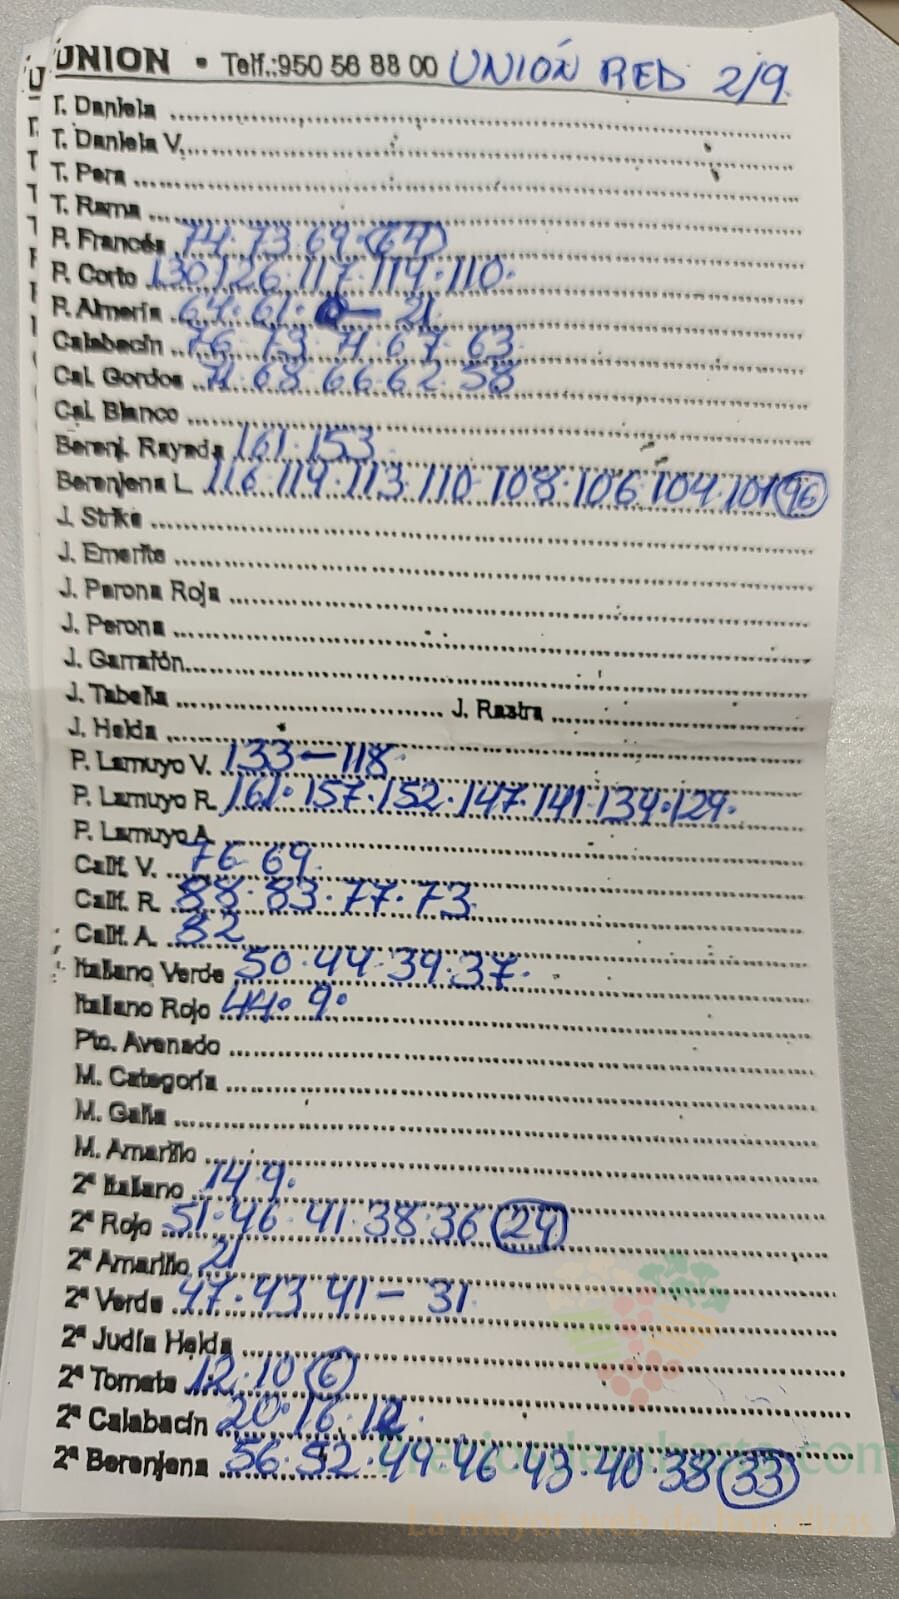 UNION • Telf.:950 56 88 00 UNIÓN RED 2/9
T. Daniela
T. Daniela V.
T. Pera
T. Rama
P. Francés 74·73·69·(64)
P. Corto 130·126·117·114·110·
P. Almería 64·61· — 21
Calabacín 76·73·71·67·63
Cal. Gordos 71·68·66·62·58
Cal. Blanco
Berenj. Rayada 161·153
Berenjena L. 116·114·113·110·108·106·104·101 (96)
J. Strike
J. Emerite
J. Perona Roja
J. Perona
J. Garrafón
J. Tabella J. Rastra
J. Helda
P. Lamuyo V. 133—118
P. Lamuyo R. 161·157·152·147·141·134·129·
P. Lamuyo A.
Calif. V. 76·69
Calif. R. 88·83·77·73
Calif. A. 82
Italiano Verde 50·44·39·37·
Italiano Rojo 44·9·
Pto. Avenado
M. Categoría
M. Galia
M. Amarillo
2ª Italiano 14·9·
2ª Rojo 51·46·41·38·36 (24)
2ª Amarillo 21
2ª Verde 47·43·41—31
2ª Judía Helda
2ª Tomate 12·10 (6)
2ª Calabacín 20·16·12·
2ª Berenjena 56·52·49·46·43·40·38 (33)
La mayor web de hortalizas